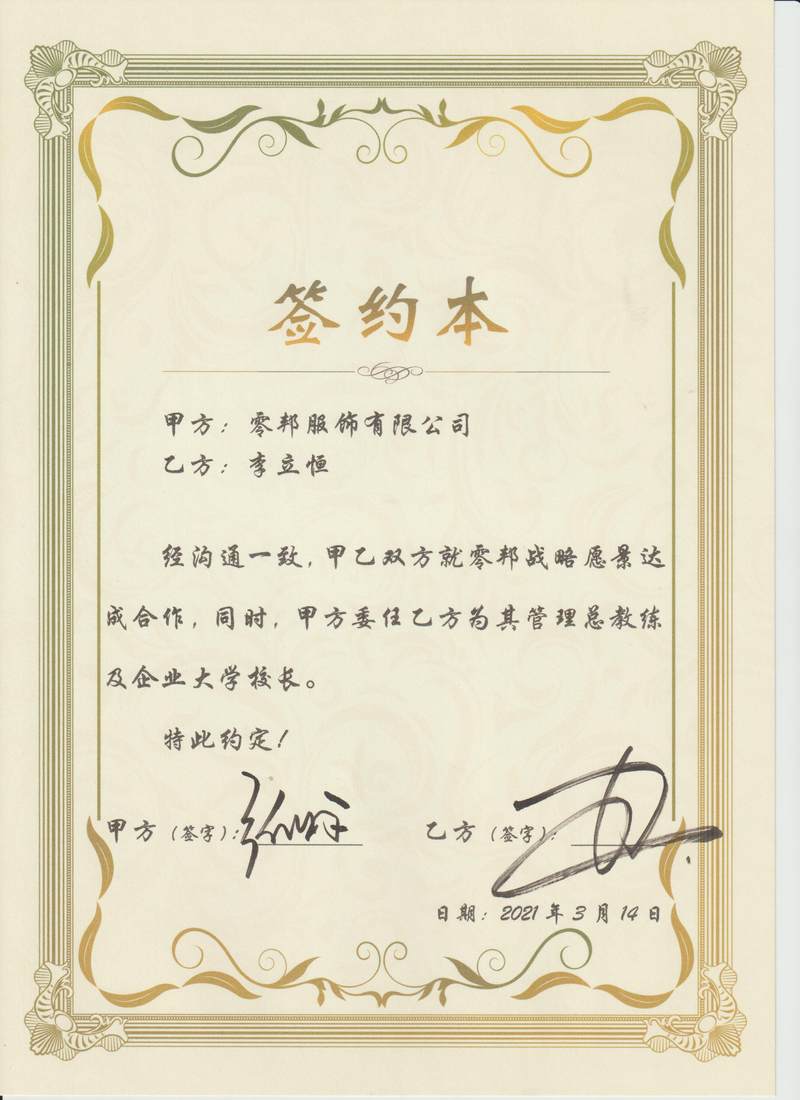 签约本
甲方：零邦服饰有限公司
乙方：李立恒
经沟通一致，甲乙双方就零邦战略愿景达
成合作，同时，甲方委任乙方为其管理总教练
及企业大学校长。
特此约定！
甲方（签字）： 乙方（签字）：
日期：2021年3月14日